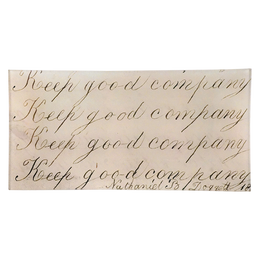 Keep good company
Keep good company
Keep good company
Keep good company
Nathaniel B.